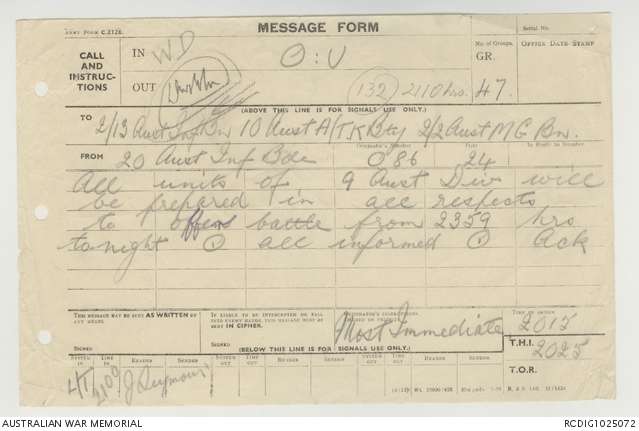 ARMY FORM C.2128.
MESSAGE FORM
Serial No.
CALL AND INSTRUCTIONS
IN WD
O:U
No. of Groups.
GR. 47.
OFFICE DATE STAMP
OUT
132 2110 hrs.
(ABOVE THIS LINE IS FOR SIGNALS USE ONLY.)
TO 2/13 Aust Inf Bn 10 Aust A/TK Bty 2/2 Aust MG Bn.
FROM 20 Aust Inf Bde
Originator's Number O86
Date 24
In Reply to Number
All units of 9 Aust Div will
be prepared in all respects
to offens battle from 2359 hrs
tonight ⊙ all informed ⊙ Ack
THIS MESSAGE MAY BE SENT AS WRITTEN BY ANY MEANS.
SIGNED
IF LIABLE TO BE INTERCEPTED OR FALL INTO ENEMY HANDS, THIS MESSAGE MUST BE SENT IN CIPHER.
SIGNED
Most Immediate
TIME OF ORIGIN
2015
T.H.I. 2025
T.O.R.
(BELOW THIS LINE IS FOR SIGNALS USE ONLY.)
SYSTEM IN
TIME IN
READER
SENDER
SYSTEM OUT
TIME OUT
READER
SENDER
SYSTEM OUT
TIME OUT
READER
SENDER
2100 J Seymour
AUSTRALIAN WAR MEMORIAL
RCDIG1025072